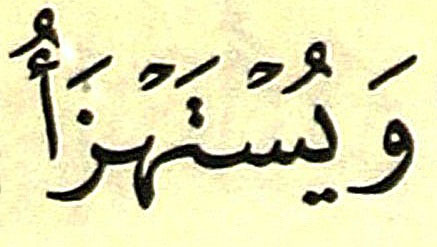 وَيُسْتَهْزَأُ